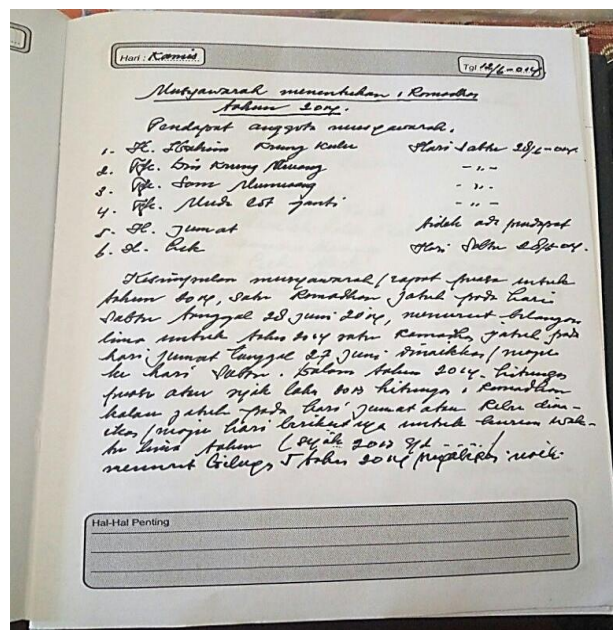 Hari : Kamis
Tgl 12/6-014.
Musyawarah menentukan 1 Romadhon
tahun 2014.
Pendapat anggota musyawarah.
1. H. Ibahim Krung Kulu Hari Sabtu 28/6-014.
2. Tgk. Dris Krung Mluang - ,, -
3. Tgk. Som Alumuang - ,, -
4. Tgk. Muda Cot ganti - ,, -
5. H. Jumat tidak ada pendapat
6. H. Cek Hari Sabtu 28/6-014.
Kesimpulan musyawarah/rapat puasa untuk
tahun 2014, satu Romadhon jatuh pada hari
Sabtu tanggal 28 Juni 2014, menurut bilangan
lima untuk tahun 2014 satu Ramadhan jatuh pada
hari Jumat tanggal 27 Juni dinaikkan/maju
ke hari Sabtu. Dalam tahun 2014 hitungan
puasa atau sejak tahun 2013 hitungan 1 Romadhon
kalau jatuh pada hari jumat atau Rabu dina-
ikan/maju hari berikutnya untuk kurun wak-
tu lima tahun (sejak 2013 s/d ....../
menurut bilangan 5 tahun 2014
Hal-Hal Penting